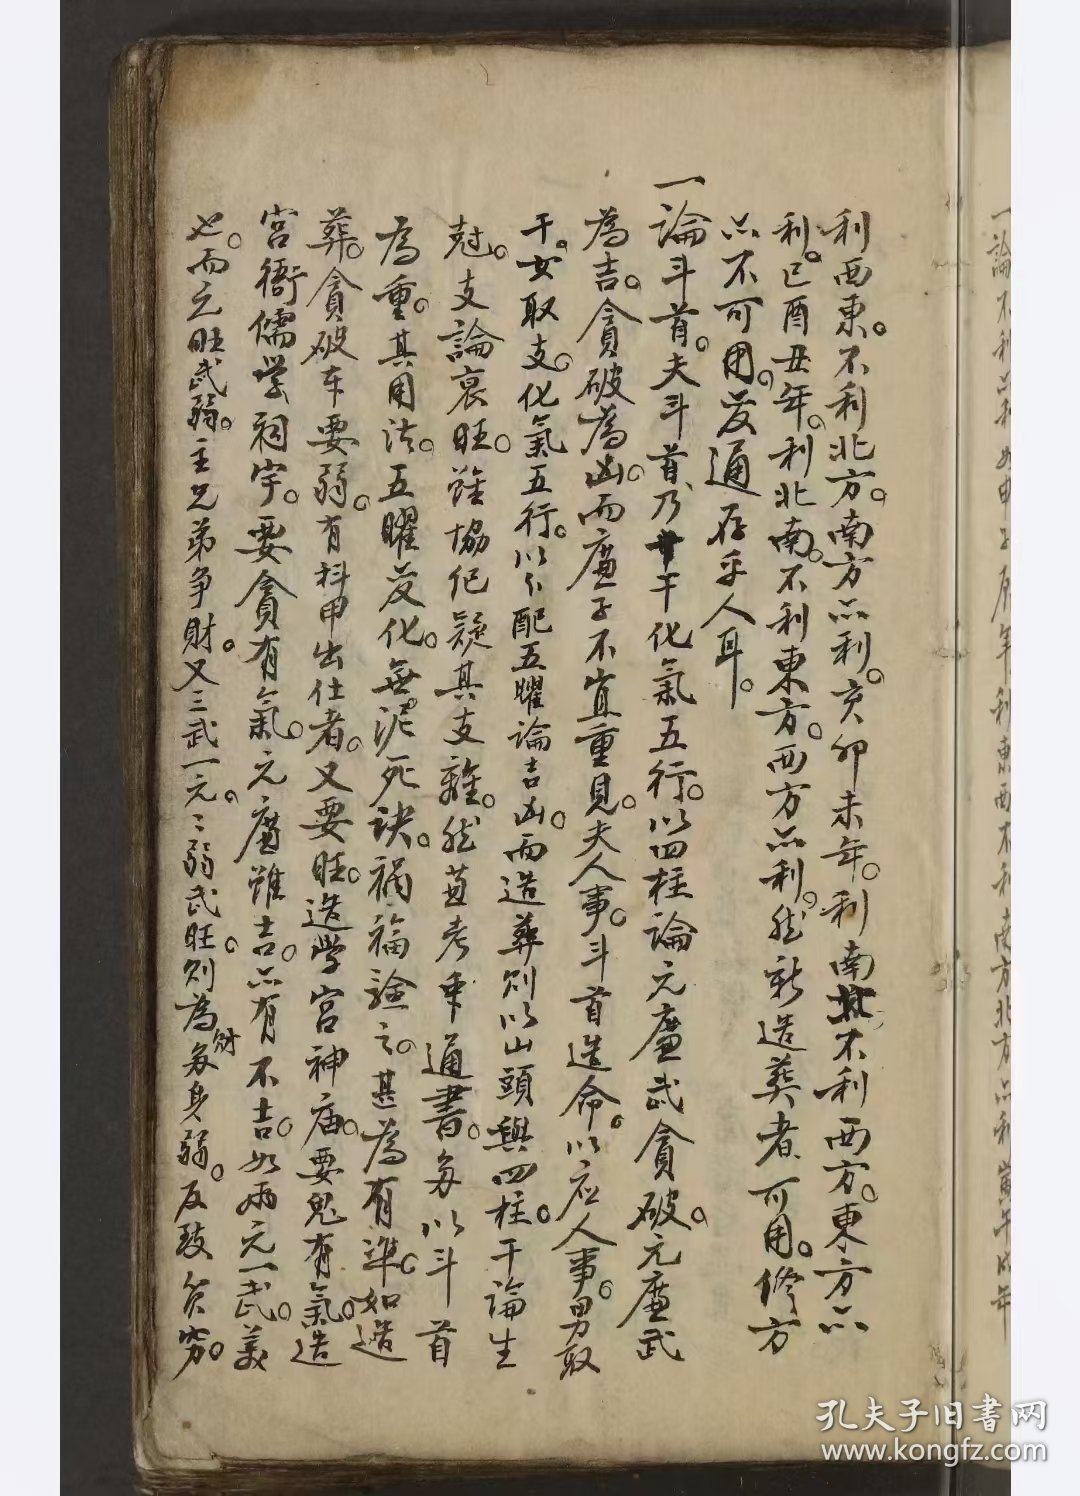 利西東。不利北方。南方亦利。亥卯未年。利南北不利西方。東方亦
利。巳酉丑年。利北南。不利東方。西方亦利。然新造葬者可用。修方
亦不可用。变通存乎人耳。
一論斗首。夫斗首乃十干化氣五行。以四柱論元廉武貪破。元廉武
為吉。貪破為凶。而廉子不宜重見。夫人事。斗首造命。以应人事。男取
干。女取支。化氣五行。以配五曜論吉凶。而造葬則以山頭與四柱。干論生
尅。支論衰旺。雖協紀疑其支離。然查考東通書。多以斗首
為重。其用法。五曜变化。無泥死訣。禍福論之。甚為有準。如造
葬。貪破本要弱。有科甲出仕者。又要旺。造学宮神庙。要鬼有氣。造
宮衙儒学祠宇。要貪有氣。元廉雖吉。亦有不吉。如兩元一武。美
也。而元旺武弱。主兄弟争財。又三武一元。元弱武旺。則為財多身弱。反致貧穷。
一論不利亦利
年利東西不利南方北方亦利寅午戌年
孔夫子旧書网
www.kongfz.com